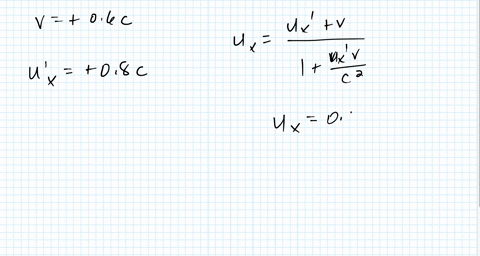 v = + 0.6c
u'x = + 0.8c
ux = ux' + v / 1 + ux'v / c²
ux = 0.